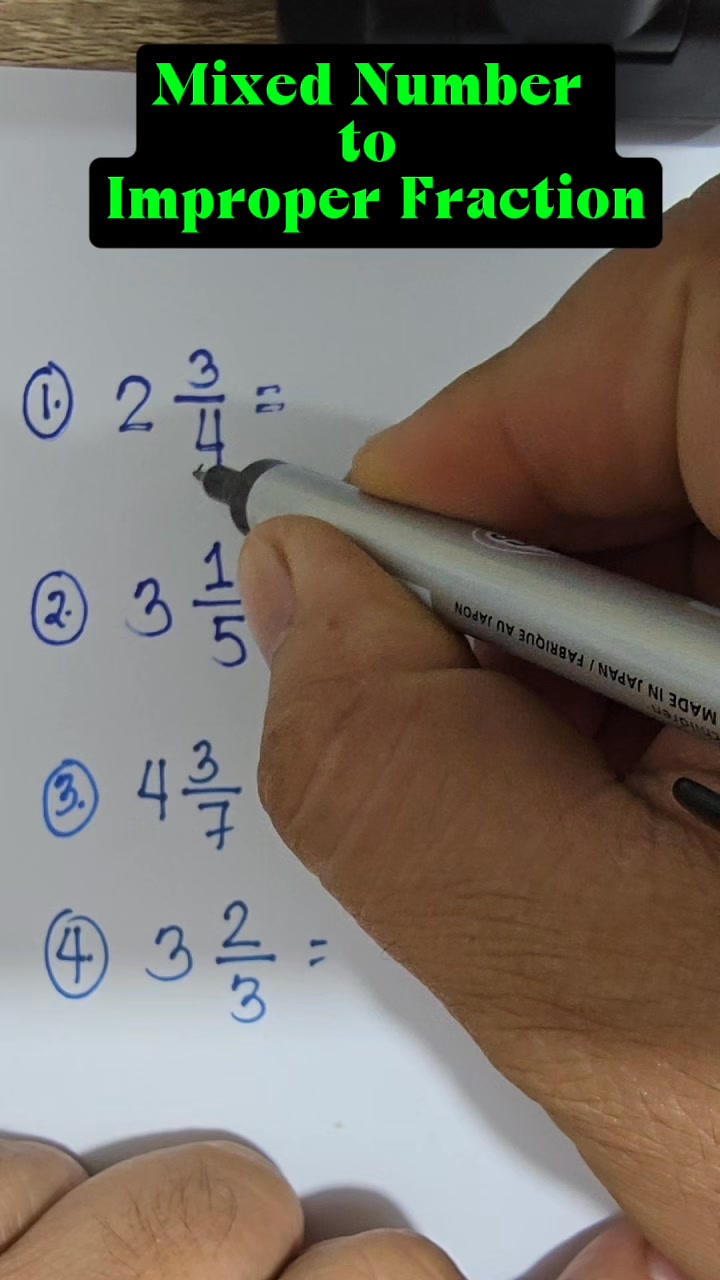 Mixed Number
to
Improper Fraction
1. 2 3/4 =
2. 3 1/5
3. 4 3/7
4. 3 2/3 =
MADE IN JAPAN / FABRIQUE AU JAPON
children